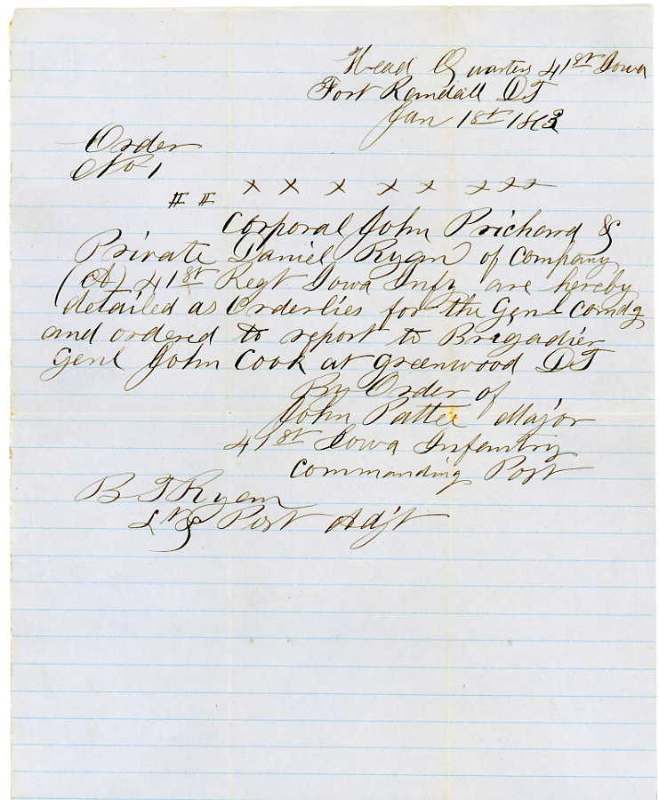 Head Quarters 41st Iowa
Fort Randall DT
Jan 1st 1863
Order
No 1
# # x x x x x x x x
Corporal John Prichard &
Private Daniel Ryan of Company
(A) 41st Regt Iowa Infy are hereby
detailed as Orderlies for the Genl Comdg
and ordered to report to Brigadier
Genl John Cook at Greenwood DT
By Order of
John Pattee Major
41st Iowa Infantry
Commanding Post
B T Ryan
Lt & Post Adjt